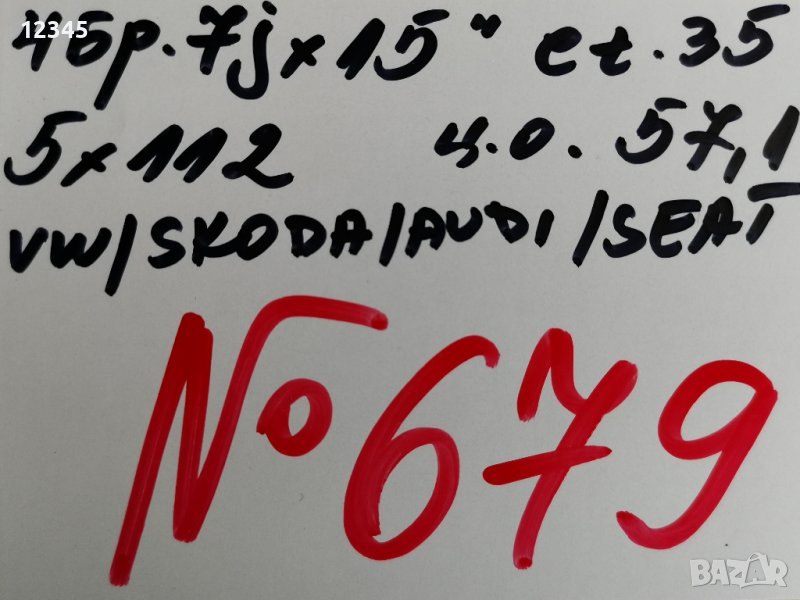 12345
4бр. 7jx15" et.35
5x112 ц.о. 57,1
VW/SKODA/AUDI/SEAT
№679
BAZAR